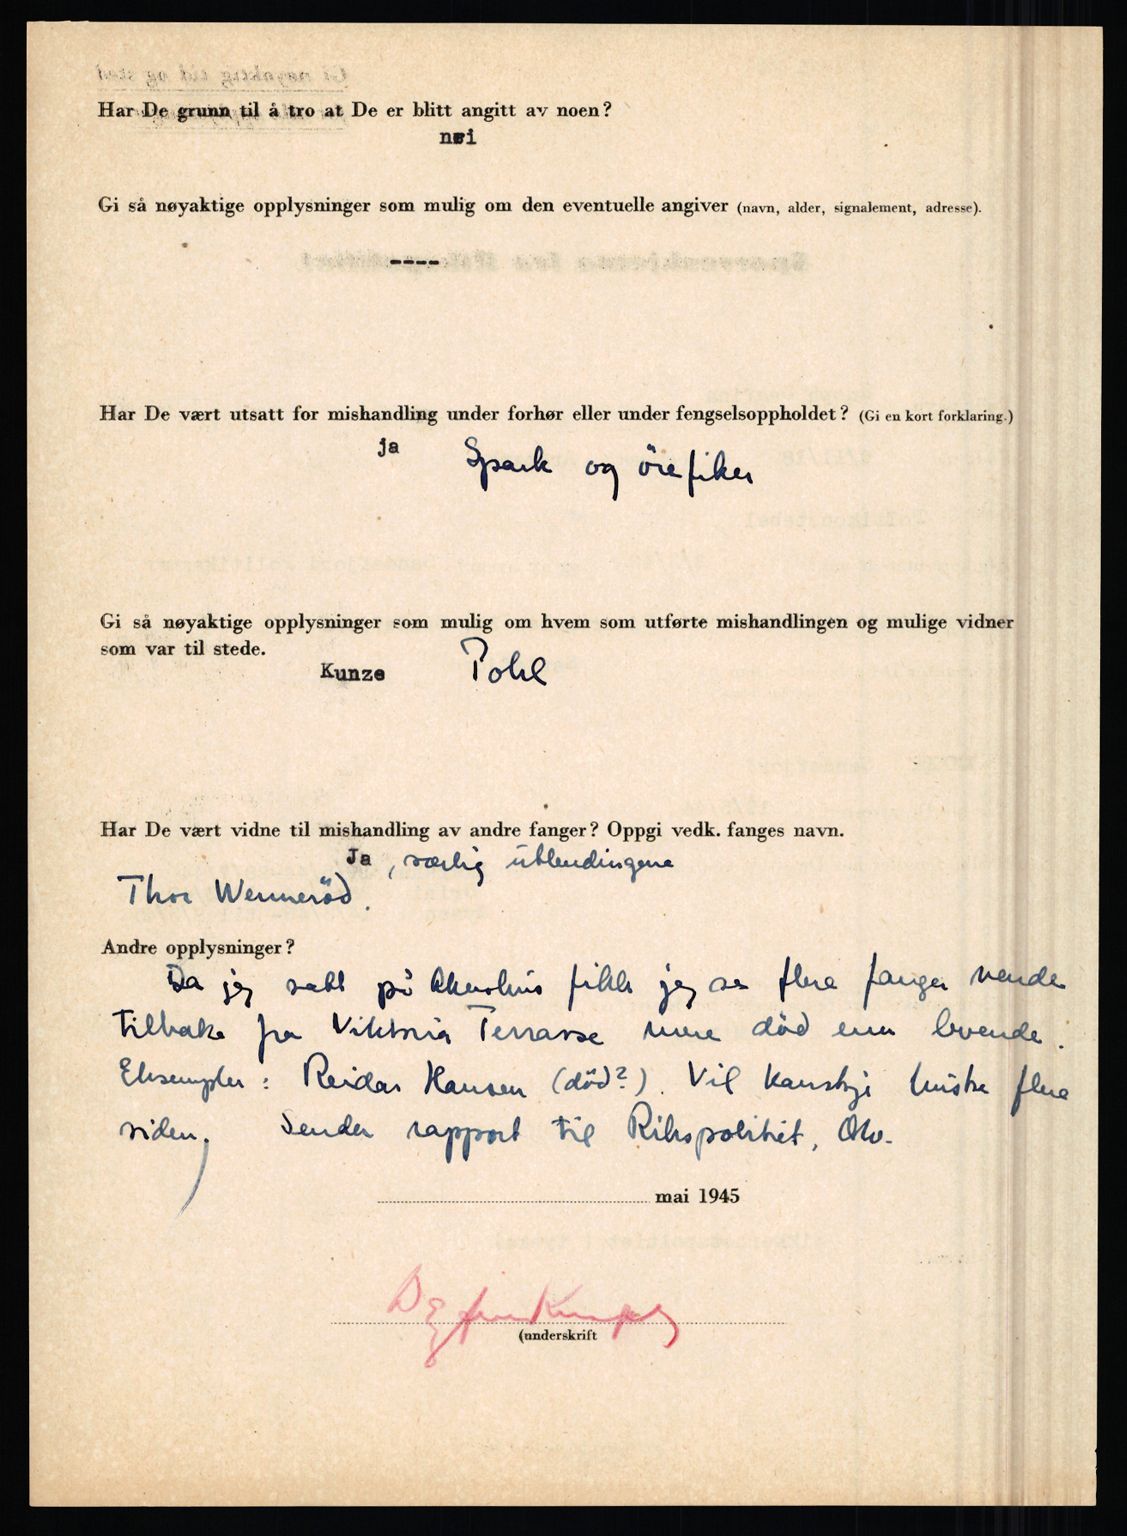 Har De grunn til å tro at De er blitt angitt av noen?
nei
Gi så nøyaktige opplysninger som mulig om den eventuelle angiver (navn, alder, signalement, adresse).
----
Har De vært utsatt for mishandling under forhør eller under fengselsoppholdet? (Gi en kort forklaring.)
ja Spark og örefiker
Gi så nøyaktige opplysninger som mulig om hvem som utførte mishandlingen og mulige vidner
som var til stede.
Kunze Pohl
Har De vært vidne til mishandling av andre fanger? Oppgi vedk. fanges navn.
Ja, særlig utlendingene
Thor Wenneröd.
Andre opplysninger?
Da jeg satt på Akershus fikk jeg se flere fanger vende
tilbake fra Viktoria Terrasse mere död enn levende.
Eksempler: Reidar Hansen (död?). Vil kanskje huske flere
siden. Sender rapport til Rikspolitiet, Oslo.
mai 1945
(underskrift